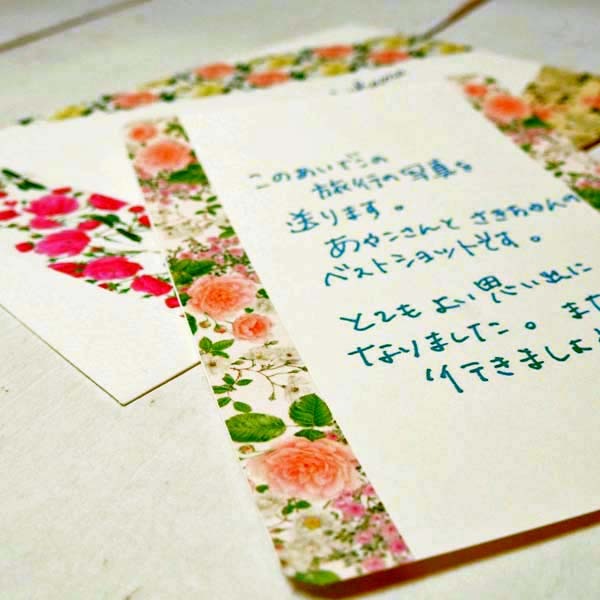 このあいだの
旅行の写真を
送ります。
あやこさんと さきちゃんの
ベストショットです。
とてもよい思い出に
なりました。また
行きましょ